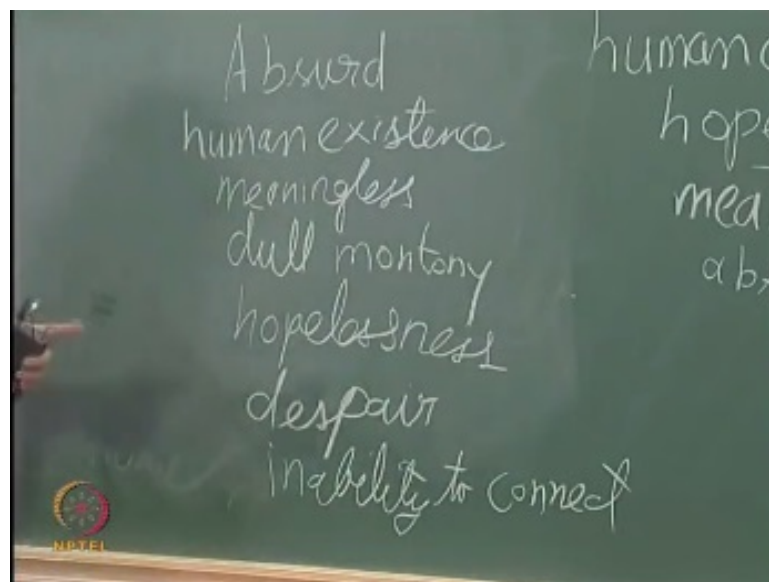 Absurd
human existence
meaningless
dull montony
hopelessness
despair
inability to connect
human
hope
mea
abs
NPTEL